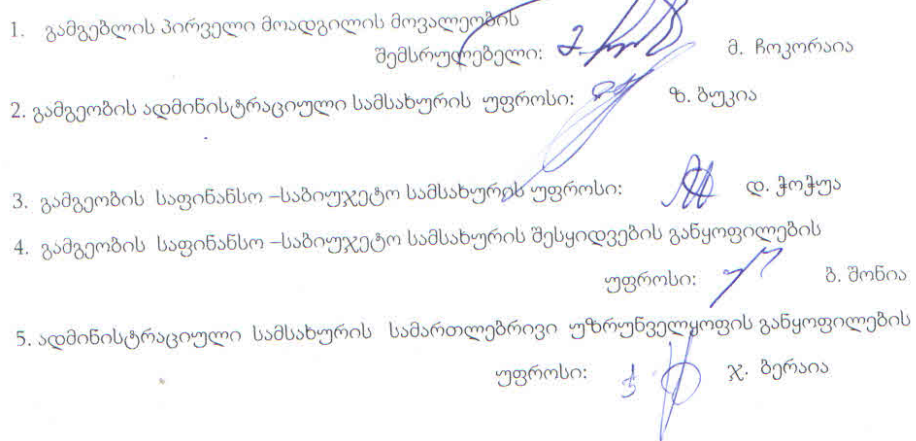 1. გამგებლის პირველი მოადგილის მოვალეობის
შემსრულებელი: მ. ჩოკორაია
2. გამგეობის ადმინისტრაციული სამსახურის უფროსი: ზ. ბუკია
3. გამგეობის საფინანსო –საბიუჯეტო სამსახურის უფროსი: დ. ჭოჭუა
4. გამგეობის საფინანსო –საბიუჯეტო სამსახურის შესყიდვების განყოფილების
უფროსი: ბ. შონია
5. ადმინისტრაციული სამსახურის სამართლებრივი უზრუნველყოფის განყოფილების
უფროსი: ჯ. ბერაია